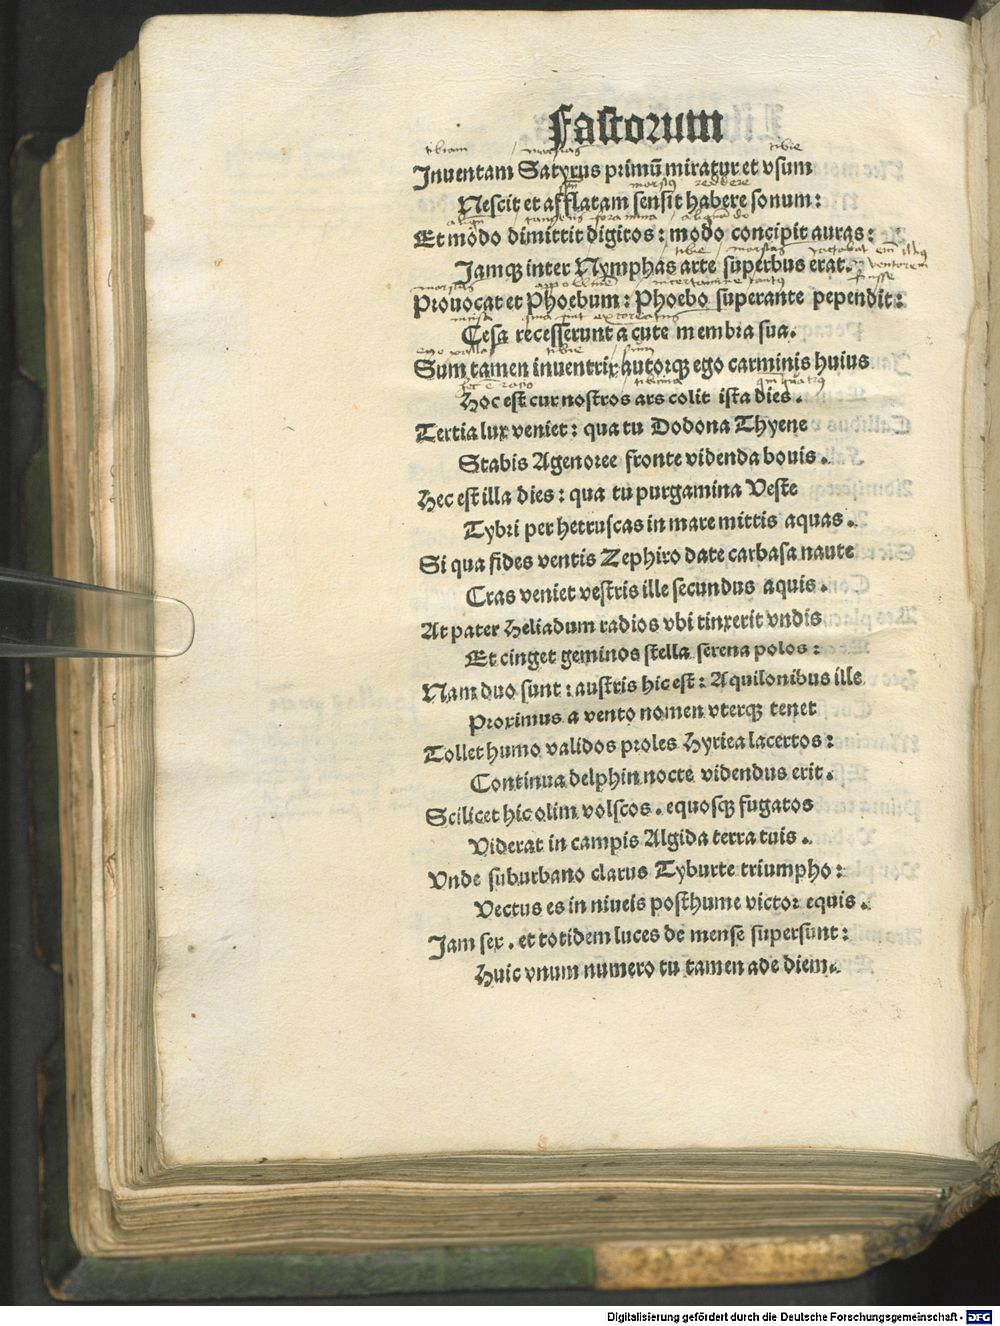 Fastorum
tibiam marsias tibie
Inuentam Satyrus primū miratur et vsum
marsiꝰ reddere
Nescit et afflatam sensit habere sonum:
tangens foramina
Et modo dimittit digitos: modo concipit auras:
tibie marsias iactabat illiꝰ
Jamqꝫ inter Nymphas arte superbus erat.
inuentorem fuisse
marsias
Prouocat et Phoebum: Phoebo superante pependit:
Cesa recesserunt a cute membra sua.
ego pallas tibie sum
Sum tamen inuentrix autorqꝫ ego carminis huius
Hoc est cur nostros ars colit ista dies.
Tertia lux veniet: qua tu Dodona Thyene
Stabis Agenoree fronte videnda bouis.
Hec est illa dies: qua tu purgamina Veste
Tybri per hetruscas in mare mittis aquas.
Si qua fides ventis Zephiro date carbasa naute
Cras veniet vestris ille secundus aquis.
At pater Heliadum radios vbi tinxerit vndis
Et cinget geminos stella serena polos:
Nam duo sunt: austris hic est: Aquilonibus ille
Proximus a vento nomen vterqꝫ tenet
Tollet humo validos proles Hyriea lacertos:
Continua delphin nocte videndus erit.
Scilicet hic olim volscos. equosqꝫ fugatos
Viderat in campis Algida terra tuis.
Vnde suburbano clarus Tyburte triumpho:
Vectus es in niueis posthume victor equis.
Jam sex. et totidem luces de mense supersunt:
Huic vnum numero tu tamen ade diem.
Digitalisierung gefördert durch die Deutsche Forschungsgemeinschaft - DFG